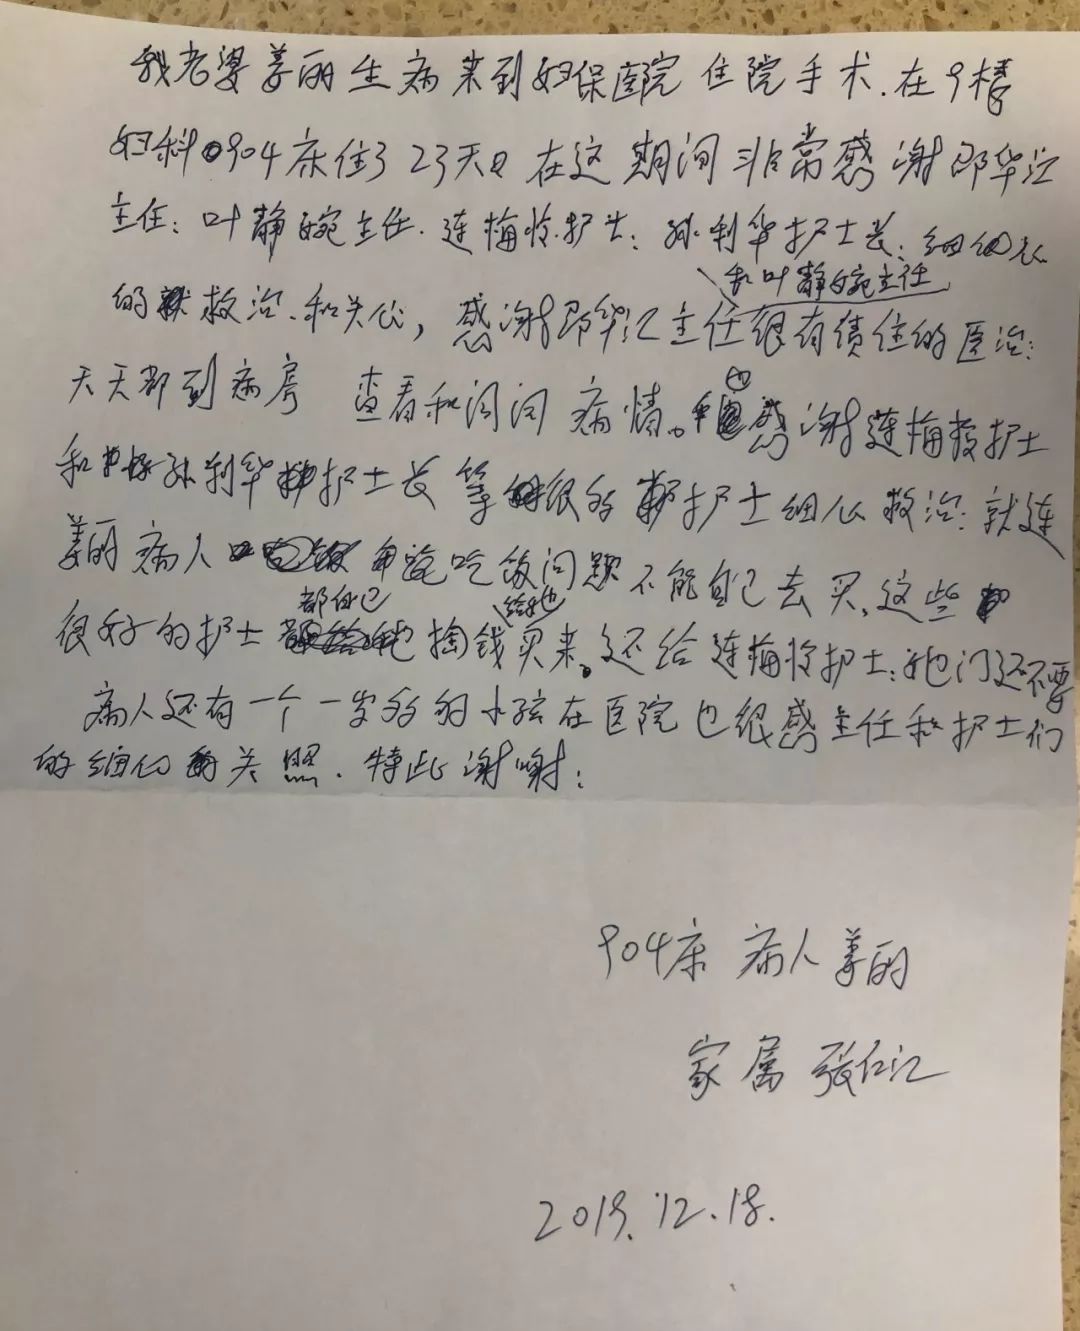 我老婆姜丽生病来到妇保医院住院手术.在9楼
妇科904床住了23天 在这期间非常感谢邵华江
主任:叶静婉主任.连梅怜护士:孙利华护士长:细心
的救治.和关心,感谢邵华江主任和叶静婉主任很有责任的医治:
天天都到病房 查看和问问病情。也感谢连梅怜护士
和孙利华护士长等很多护士细心救治:就连
姜丽病人吃饭问题不能自己去买,这些
很好的护士都自己掏钱给她买来。还给连梅怜护士:她门还不要
病人还有一个一岁多的小孩在医院也很感主任和护士们
的细心关照.特此谢谢:
904床 病人姜丽
家属 张仁江
2019.12.18.